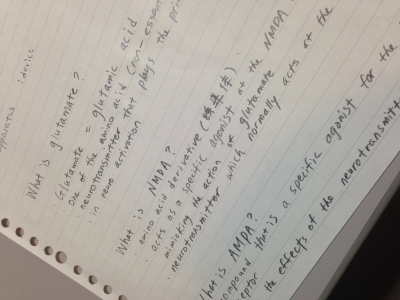 apparatus : device
What is glutamate?
Glutamate = glutamic acid
one of the amino acid (non-essen
neurotransmitter that plays the pri
in neuro activation
What is NMDA?
· amino acid derivative (
· acts as a specific agonist at the NMDA
mimicking the action of glutamate
· neurotransmitter which normally acts at the
What is AMPA?
compound that is a specific agonist for the
eptor
the effects of the neurotransmitt